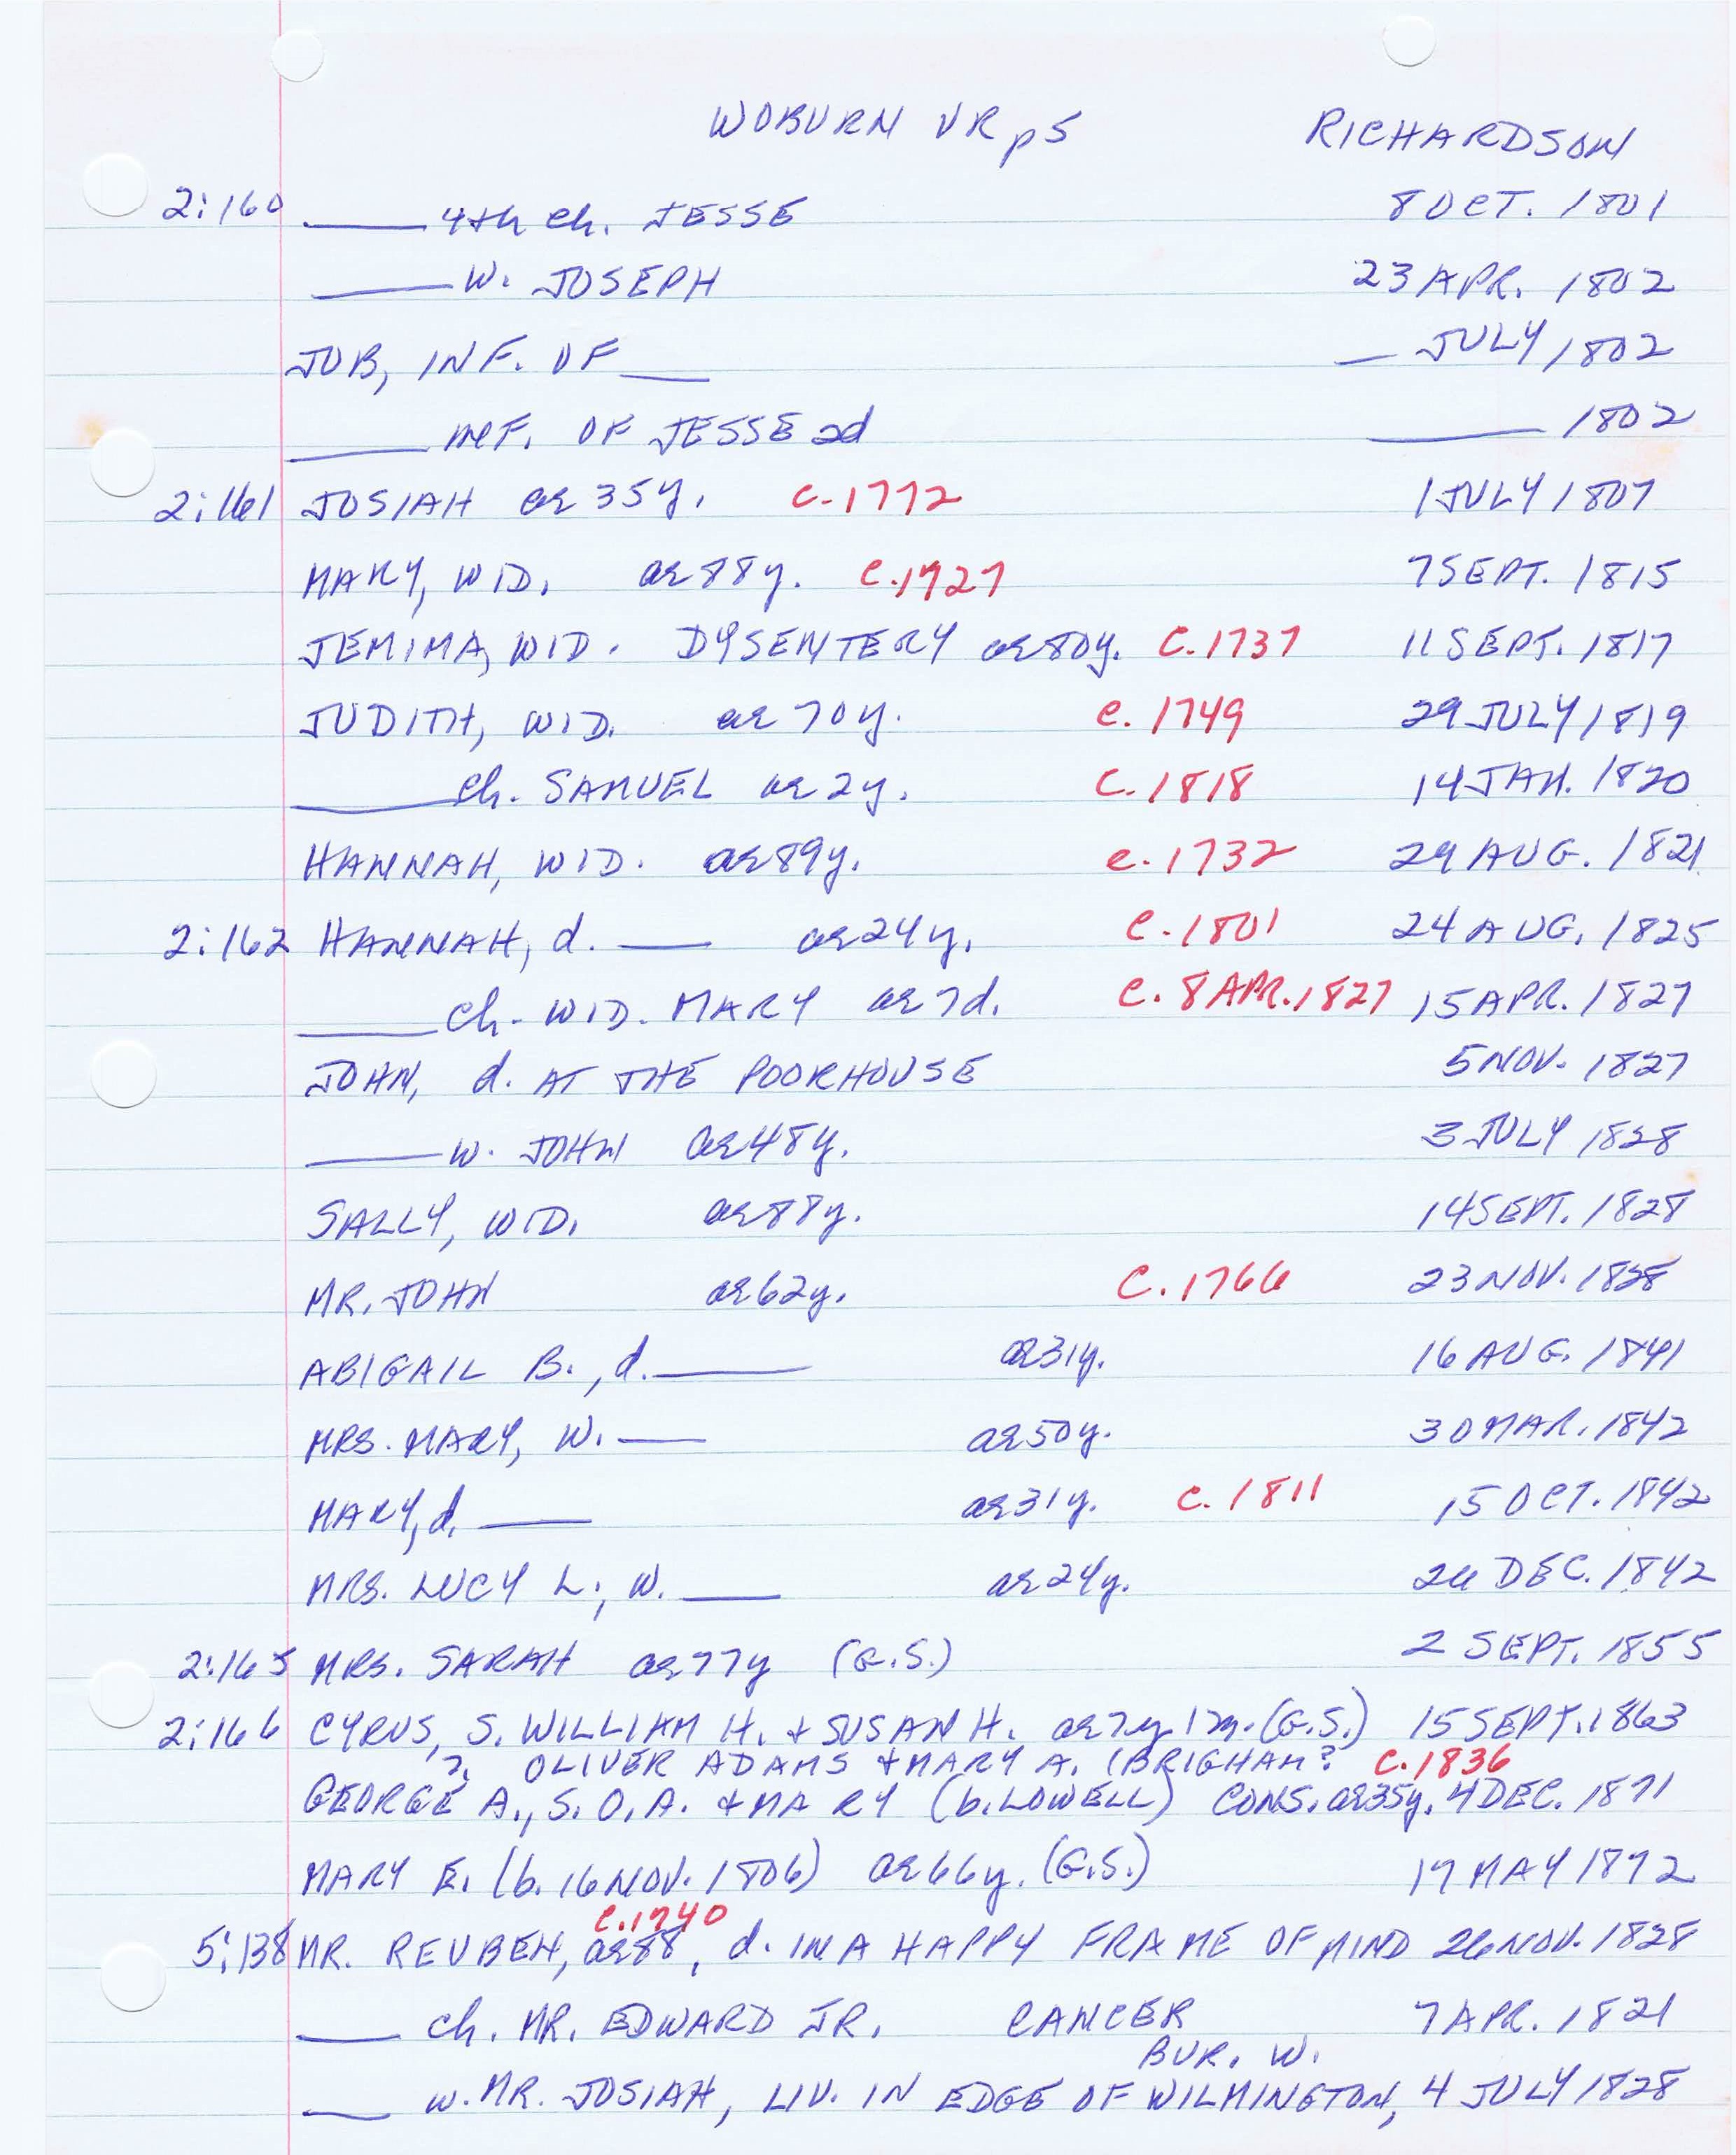 WOBURN VR p5 RICHARDSON
2:160 ____ 4th ch. JESSE 8 OCT. 1801
____ W. JOSEPH 23 APR. 1802
JOB, INF. OF ____ __ JULY 1802
____ INF. OF JESSE 2d ____ 1802
2:161 JOSIAH ae 35y. c.1772 1 JULY 1807
MARY, WID. ae 88y. c.1727 7 SEPT. 1815
JEMIMA, WID. DYSENTERY ae 80y. c.1737 11 SEPT. 1817
JUDITH, WID. ae 70y. c.1749 29 JULY 1819
____ ch. SAMUEL ae 2y. c.1818 14 JAN. 1820
HANNAH, WID. ae 89y. c.1732 29 AUG. 1821
2:162 HANNAH, d. ____ ae 24y. c.1801 24 AUG. 1825
____ ch. WID. MARY ae 7d. c. 8 APR. 1827 15 APR. 1827
JOHN, d. AT THE POORHOUSE 5 NOV. 1827
____ W. JOHN ae 48y. 3 JULY 1828
SALLY, WID. ae 88y. 14 SEPT. 1828
MR. JOHN ae 62y. c.1766 23 NOV. 1828
ABIGAIL B., d. ____ ae 31y. 16 AUG. 1841
MRS. MARY, W. ____ ae 50y. 30 MAR. 1842
MARY, d. ____ ae 31y. c.1811 15 OCT. 1842
MRS. LUCY L., W. ____ ae 24y. 26 DEC. 1842
2:165 MRS. SARAH ae 77y (G.S.) 2 SEPT. 1855
2:166 CYRUS, S. WILLIAM H. + SUSAN H. ae 7y 1m. (G.S.) 15 SEPT. 1863
?. OLIVER ADAMS + MARY A. (BRIGHAM? c.1836
GEORGE A., S. O.A. + MARY (b. LOWELL) CONS. ae 35y. 4 DEC. 1871
MARY E. (b. 16 NOV. 1806) ae 66y. (G.S.) 17 MAY 1872
c.1740
5:138 MR. REUBEN, ae 88, d. IN A HAPPY FRAME OF MIND 26 NOV. 1828
____ ch. MR. EDWARD JR. CANCER 7 APR. 1821
BUR. W.
____ w. MR. JOSIAH, LIV. IN EDGE OF WILMINGTON, 4 JULY 1828